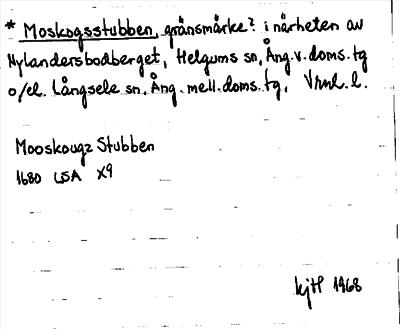 * Moskogsstubben, gränsmärke? i närheten av
Nylandersbodberget, Helgums sn, Ång.v.doms.tg
o/el. Långsele sn, Ång. mell.doms.tg, Vrnl. l.
Mooskougz Stubben
1680 LSA X9
kjtP 1968